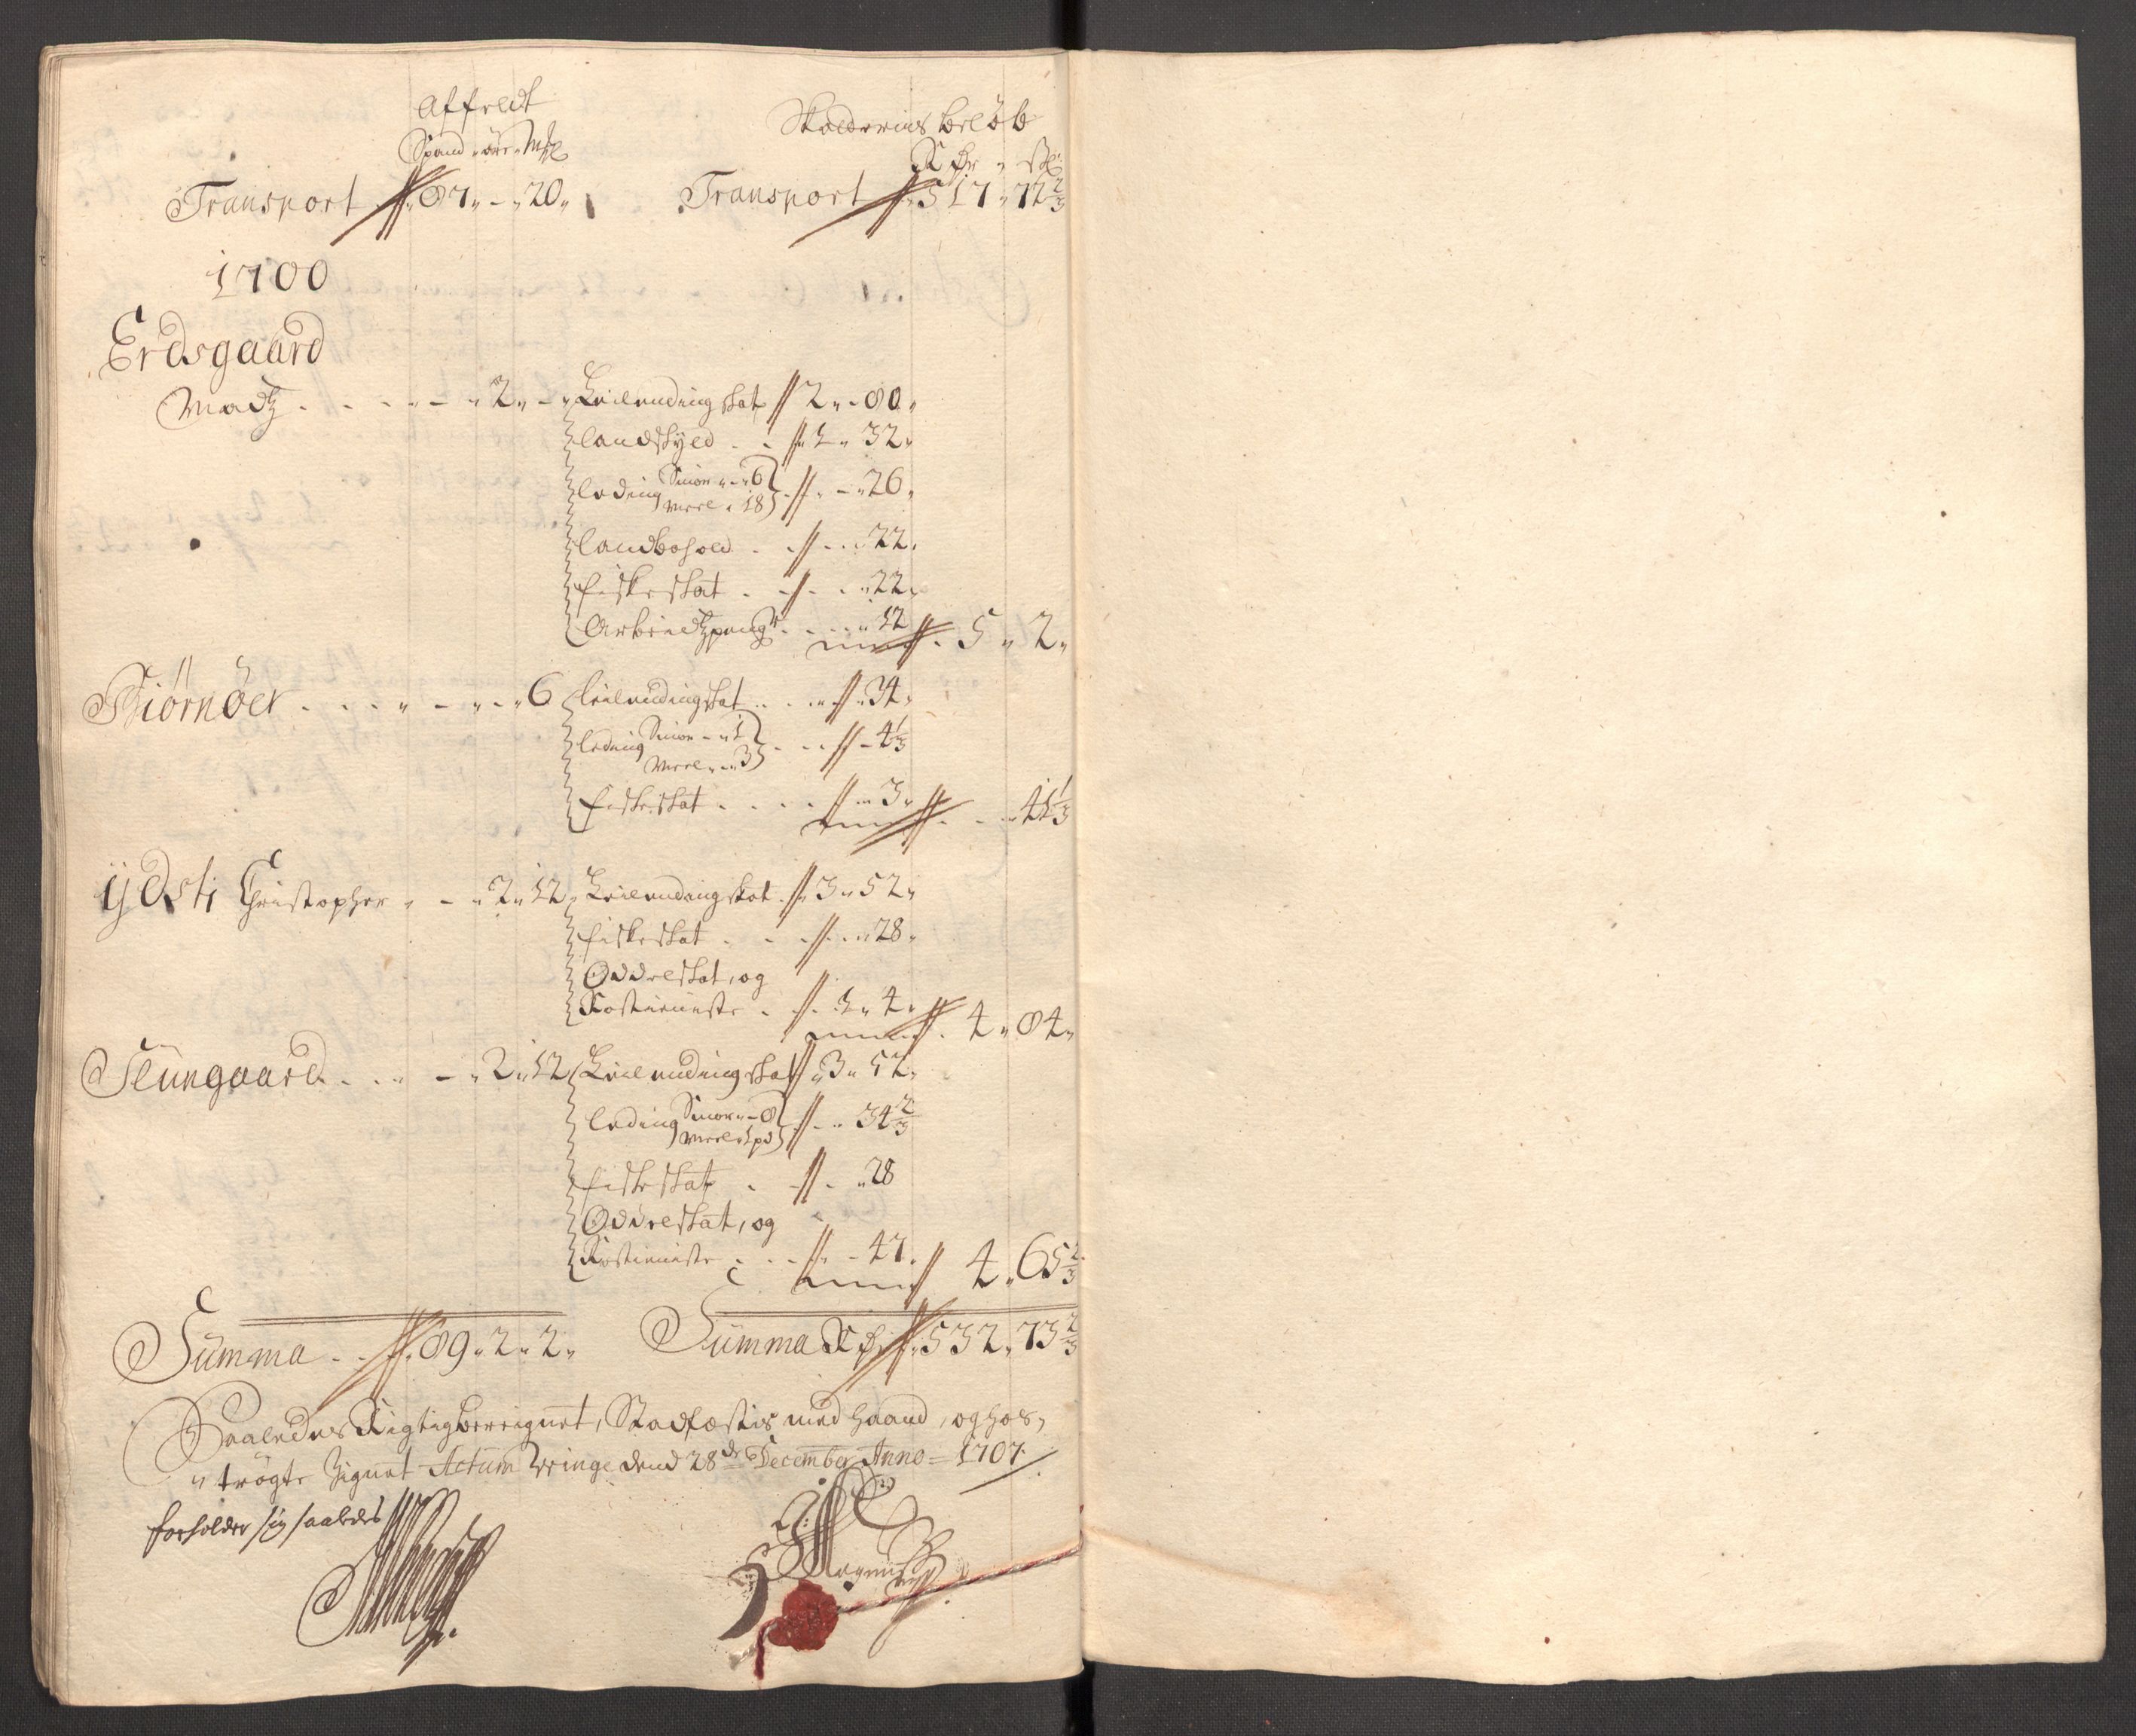 Affeldt
Spand øre Mkl
Skolderius beløb
Rdr ß
Transport 87 - 20
Transport 517 72 2/3
1700
Erdsgaard
Madtz - 2 - Leilendingskat 2 - 80
landskyld 1 32
leding Smør 6 Meel 18 - 26
landbohold 22
fiskeskat 22
Arbeidtzpenger 12
5 2
Biørnøer 6 leilendingskat 34
leding Smør 1 Meel 3 - 4 1/3
fiskeskat 3
41 1/3
ÿdsti Christopher - 2 12 Leilendingskat 3 52
fiskeskat 28
Oddelskat, og
Rostieniste 1 4
4 84
Steungaard - 2 12 Leilendingskat 3 52
leding Smør 8 Meel 1 pd 34 2/3
fiskeskat 28
Oddelskat, og
Rostieniste 47
4 65 2/3
Summa 89 2 2
Summa Rdr 532 73 2/3
Saaledes Rigtig beregnet, Stadfæstis med haand, og hos,
trögte Zignet Actum Winge dend 28de December Anno = 1707
forholder sig saaledes